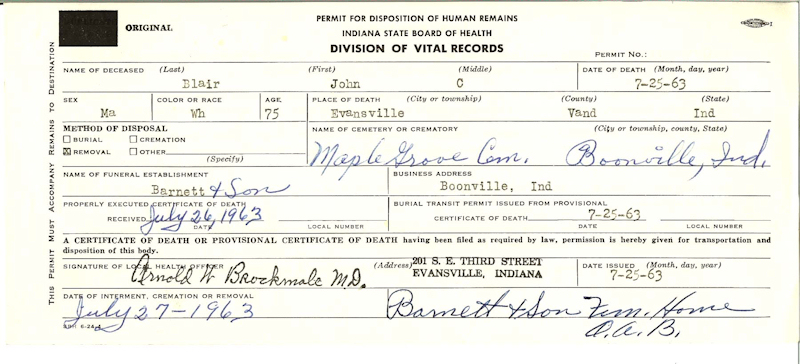 ORIGINAL
PERMIT FOR DISPOSITION OF HUMAN REMAINS
INDIANA STATE BOARD OF HEALTH
DIVISION OF VITAL RECORDS
PERMIT NO.:
THIS PERMIT MUST ACCOMPANY REMAINS TO DESTINATION
NAME OF DECEASED (Last) (First) (Middle) DATE OF DEATH (Month, day, year)
Blair John C 7-25-63
SEX COLOR OR RACE AGE PLACE OF DEATH (City or township) (County) (State)
Ma Wh 75 Evansville Vand Ind
METHOD OF DISPOSAL NAME OF CEMETERY OR CREMATORY (City or township, county, State)
☐ BURIAL ☐ CREMATION
☒ REMOVAL ☐ OTHER
(Specify)
Maple Grove Cem. Boonville, Ind.
NAME OF FUNERAL ESTABLISHMENT BUSINESS ADDRESS
Barnett & Son Boonville, Ind
PROPERLY EXECUTED CERTIFICATE OF DEATH BURIAL TRANSIT PERMIT ISSUED FROM PROVISIONAL
RECEIVED July 26, 1963 CERTIFICATE OF DEATH 7-25-63
DATE LOCAL NUMBER DATE LOCAL NUMBER
A CERTIFICATE OF DEATH OR PROVISIONAL CERTIFICATE OF DEATH having been filed as required by law, permission is hereby given for transportation and
disposition of this body.
SIGNATURE OF LOCAL HEALTH OFFICER (Address) 201 S. E. THIRD STREET DATE ISSUED (Month, day, year)
Arnold W Brockmole M.D. EVANSVILLE, INDIANA 7-25-63
DATE OF INTERMENT, CREMATION OR REMOVAL
July 27-1963 Barnett & Son Fun. Home
O.A.B.